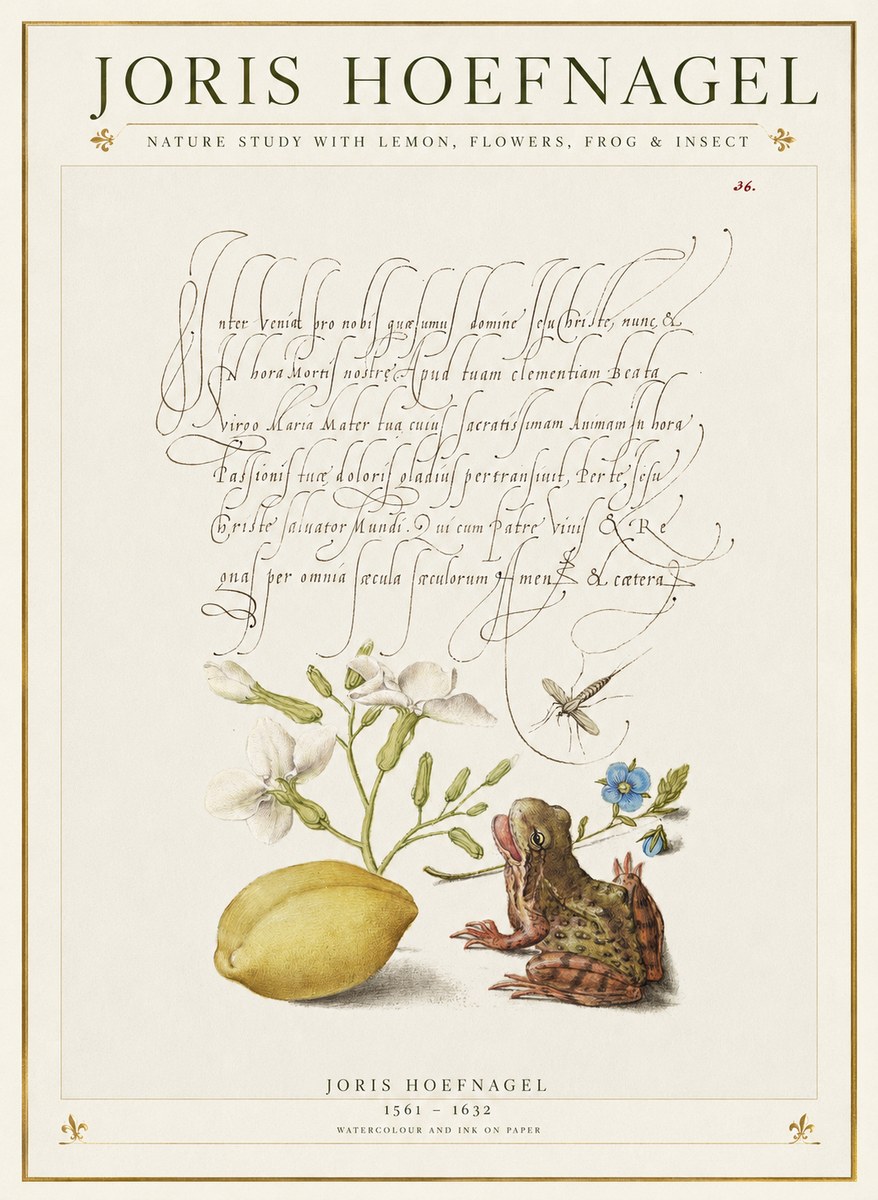 JORIS HOEFNAGEL
NATURE STUDY WITH LEMON, FLOWERS, FROG & INSECT
36.
Inter Veniat pro nobis quæsumus domine Jesu Christe, nunc, &
IN hora Mortis nostrę Apud tuam clementiam Beata
Virgo Maria Mater tua cuius sacratissimam Animam In hora
Passionis tuæ doloris gladius pertransivit, Per te Jesu
Christe salvator Mundi. Qui cum Patre Vivis & Re
gnas per omnia sæcula sæculorum Amen & cætera
JORIS HOEFNAGEL
1561 – 1632
WATERCOLOUR AND INK ON PAPER